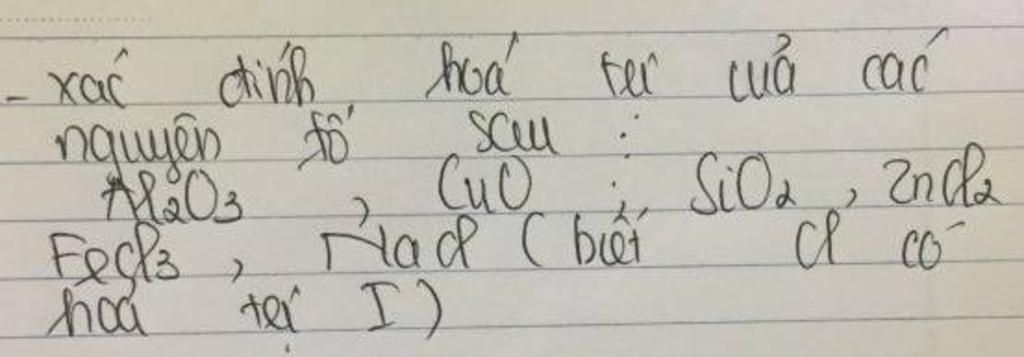 - xác định hoá trị của các
nguyên tố sau :
Al2O3 , CuO ; SiO2 , ZnCl2
FeCl3 , NaCl ( biết Cl có
hoá trị I )